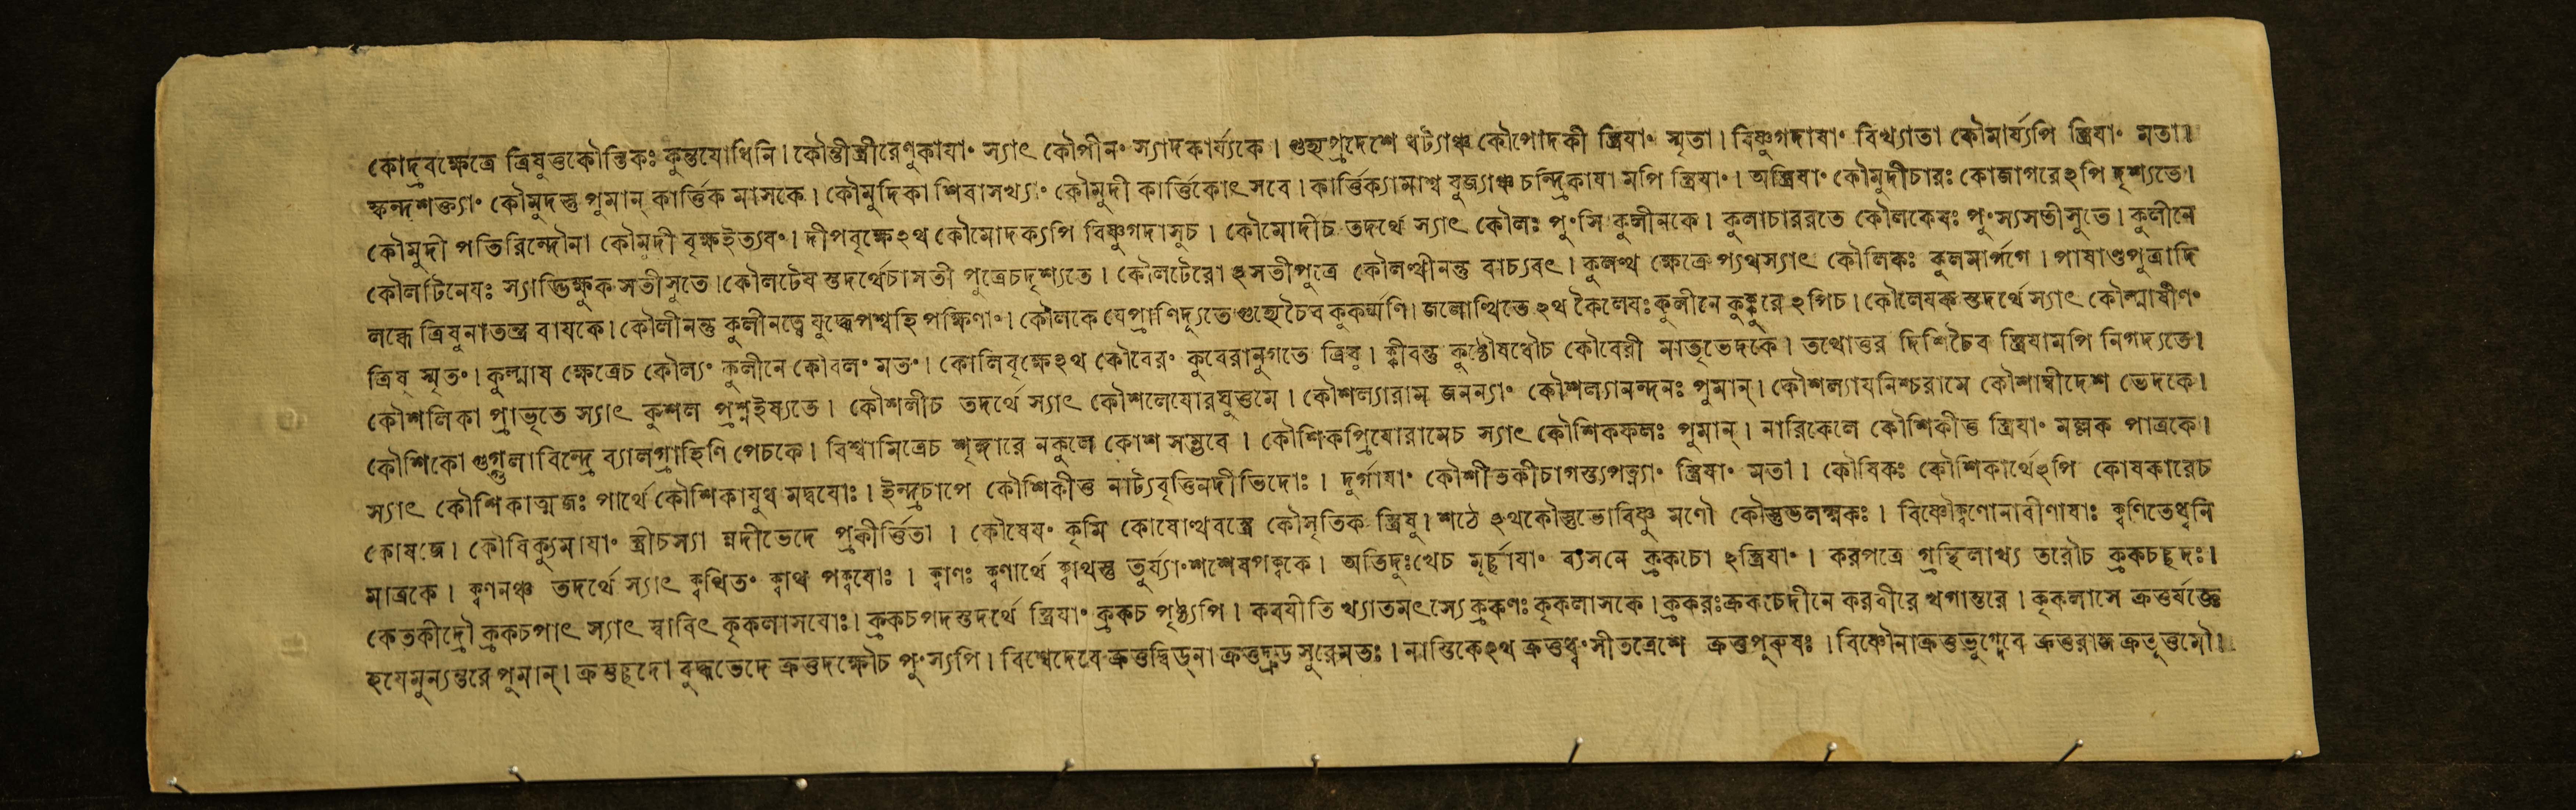 কোদ্রবক্ষেত্রে ত্রিষুত্তকৌন্তিকঃ কুন্তযোধিনি। কৌন্তীস্ত্রীরেণুকাযাং স্যাৎ কৌপীনং স্যাদকার্য্যকে। গুহ্যপ্রদেশে ধট্যাঞ্চ কৌপোদকী স্ত্রিযাং স্মৃতা। বিষ্ণুগদাযাং বিখ্যাতা কৌমার্য্যপি স্ত্রিযাং মতা॥
স্কন্দশক্ত্যাং কৌমুদস্তু পুমান্ কার্ত্তিক মাসকে। কৌমুদিকা শিবাসখ্যাং কৌমুদী কার্ত্তিকোৎসবে। কার্ত্তিক্যামাশ্ব যুজ্যাঞ্চ চন্দ্রিকাযা মপি স্ত্রিযাং। অস্ত্রিযাং কৌমুদীচারঃ কোজাগরেঽপি দৃশ্যতে।
কৌমুদী পতিরিন্দৌনা কৌমুদী বৃক্ষইত্যযং। দীপবৃক্ষেঽথ কৌমোদক্যপি বিষ্ণুগদাসুচ। কৌমোদীচ তদর্থে স্যাৎ কৌলঃ পুংসি কুলীনকে। কুলাচাররতে কৌলকেযঃ পুংস্যসতীসুতে। কুলীনে
কৌলটিনেযঃ স্যাদ্ভিক্ষুক সতীসুতে। কৌলটেয স্তদর্থেচাসতী পুত্রেচদৃশ্যতে। কৌলটেরো ঽসতীপুত্রে কৌলত্থীনন্তু বাচ্যবৎ। কুলত্থ ক্ষেত্রে প্যথস্যাৎ কৌলিকঃ কুলমার্পগে। পাষাণ্ডপুত্রাদি
লব্ধে ত্রিষুনাতন্ত্র বাযকে। কৌলীনন্তু কুলীনত্বে যুদ্ধেপশ্বহি পক্ষিণাং। কৌলকে যেপ্রাণিদ্যূতে গুহ্যেচৈব কুকর্ম্মণি। জলোত্থিতে ঽথ কৈলেযঃ কুলীনে কুক্কুরে ঽপিচ। কৌলেযক স্তদর্থে স্যাৎ কৌল্মাষীণং
ত্রিষু স্মৃতং। কুল্মাষ ক্ষেত্রেচ কৌল্যং কুলীনে কোবলং মতং। কোলিবৃক্ষেঽথ কৌবেরং কুবেরানুগতে ত্রিষু। ক্লীবন্তু কুষ্ঠৌষধৌচ কৌবেরী মাতৃভেদকে। তথোত্তর দিশিচৈব স্ত্রিযামপি নিগদ্যতে।
কৌশলিকা প্রাভৃতে স্যাৎ কুশল প্রশ্নইষ্যতে। কৌশলীচ তদর্থে স্যাৎ কৌশলেযোরঘুত্তমে। কৌশল্যারাম জনন্যাং কৌশল্যানন্দনঃ পুমান্। কৌশল্যাযনিশ্চরামে কৌশাম্বীদেশ ভেদকে।
কৌশিকো গুগ্গুলাবিন্দ্রে ব্যালগ্রাহিণি পেচকে। বিশ্বামিত্রেচ শৃঙ্গারে নকুলে কোশ সম্ভবে। কৌশিকপ্রিযোরামেচ স্যাৎ কৌশিকফলঃ পুমান্। নারিকেলে কৌশিকীত্ত স্ত্রিযাং মল্লক পাত্রকে।
স্যাৎ কৌশিকাত্মজঃ পার্থে কৌশিকাযুধ মদ্বযোঃ। ইন্দ্রচাপে কৌশিকীত্ত নাট্যবৃত্তিনদীভিদোঃ। দুর্গাযাং কৌশীতকীচাগস্ত্যপত্ন্যাং স্ত্রিযাং মতা। কৌষিকঃ কৌশিকার্থেঽপি কোষকারেচ
কোষজে। কৌষিক্যুমাযাং স্ত্রীচস্যা ন্নদীভেদে প্রকীর্ত্তিতা। কৌষেযং কৃমি কোষোত্থবস্ত্রে কৌসৃতিক স্ত্রিষু। শঠে ঽথকৌস্তুভোবিষ্ণু মণৌ কৌস্তুভলক্ষ্মকঃ। বিষ্ণৌক্বণোনাবীণাযাঃ ক্বণিতেধ্বনি
মাত্রকে। ক্বণনঞ্চ তদর্থে স্যাৎ ক্বথিতং ক্বাথ পক্বযোঃ। ক্বাণঃ ক্বণার্থে ক্বাথস্তু তুর্য্যাংশশেষপক্বকে। অতিদুঃখেচ মূর্চ্ছাযাং ব্যসনে ক্রকচো ঽস্ত্রিযাং। করপত্রে গ্রন্থিলাখ্য তরৌচ ক্রকচছদঃ।
কেতকীদ্রৌ ক্রকচপাৎ স্যাৎ শ্বাবিৎ কৃকলাসযোঃ। ক্রকচপদস্তদর্থে স্ত্রিযাং ক্রকচ পৃষ্ঠ্যপি। কবযীতি খ্যাতমৎস্যে ক্রকণঃ কৃকলাসকে। ক্রকরঃক্রকচেদীনে করবীরে খগান্তরে। কৃকলাসে ক্রত্তর্যজ্ঞে
হযেমুন্যন্তরে পুমান্। ক্রত্তছদো বুদ্ধভেদে ক্রত্তদক্ষৌচ পুংস্যপি। বিশ্বেদেবে ক্রত্তদ্বিড্না ক্রত্তদ্রুড সুরেমতঃ। নাস্তিকেঽথ ক্রত্তধ্বংসীতত্রেশে ক্রত্তপুরুষঃ। বিষ্ণৌনাক্রত্তভুগ্দেবে ক্রত্তরাজ ক্রতূত্তমৌ।